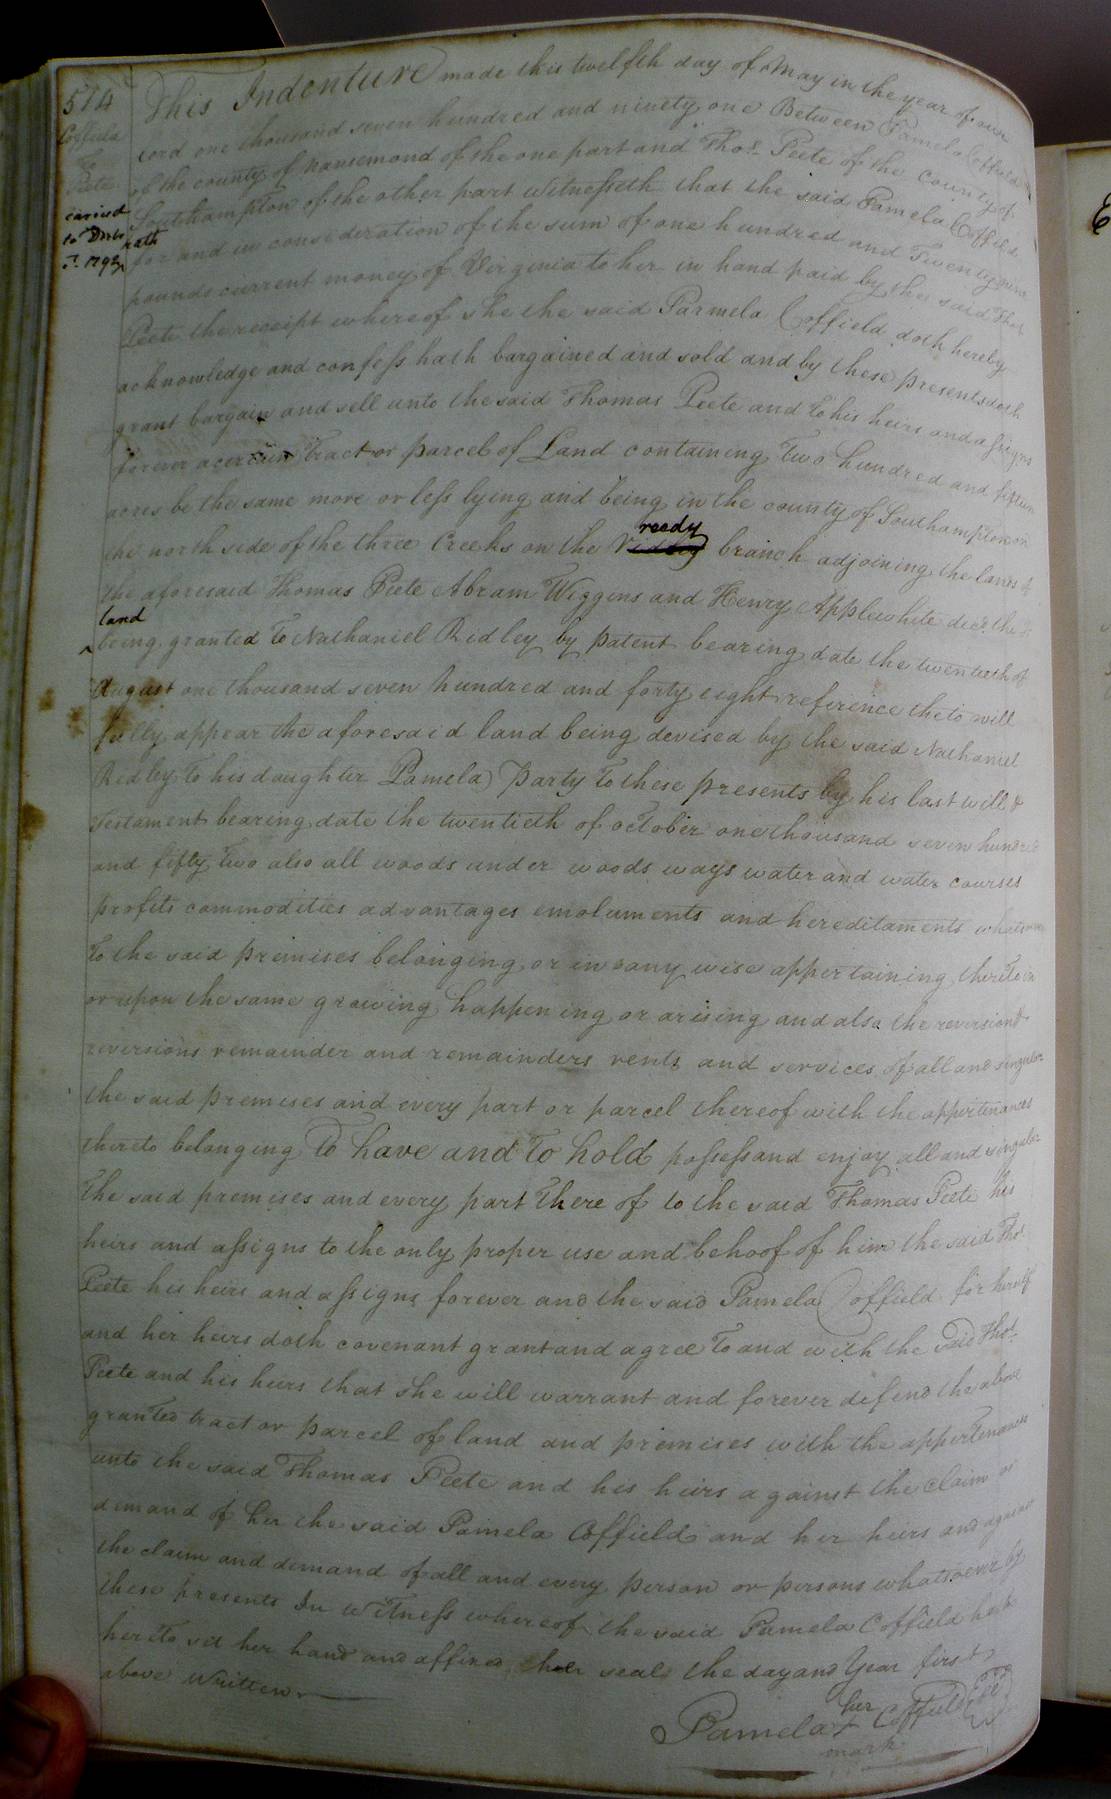 574
Coffield
To
Peete
carried
to Dml rath
1792
This Indenture made this twelfth day of May in the year of our
Lord one thousand seven hundred and ninety one Between Pamela Coffield
of the county of Nansemond of the one part and Thos. Peete of the County of
Southampton of the other part Witnesseth that the said Pamela Coffield
for and in consideration of the sum of one hundred and Twenty nine
pounds current money of Virginia to her in hand paid by the said Thos.
Peete the receipt whereof she the said Parmela Coffield doth hereby
acknowledge and confess hath bargained and sold and by these presents doth
grant bargain and sell unto the said Thomas Peete and to his heirs and assigns
forever a certain Tract or parcel of Land containing Two hundred and fifteen
acres be the same more or less lying and being in the county of Southampton on
the north side of the three Creeks on the ready branch adjoining the lands of
the aforesaid Thomas Peete Abram Wiggins and Henry Applewhite decd. the sd
land
being granted to Nathaniel Ridley by patent bearing date the twentieth of
August one thousand seven hundred and forty eight reference theto will
fully appear the aforesaid land being devised by the said Nathaniel
Ridley to his daughter Pamela) party to these presents by his last will &
Testament bearing date the twentieth of october one thousand seven hundred
and fifty two also all woods under woods ways water and water courses
profits commodities advantages emoluments and hereditaments whatsoever
to the said premises belonging or in any wise appertaining thereto or
or upon the same growing happening or arising and also the reversion &
reversions remainder and remainders rents and services of all and singular
the said premises and every part or parcel thereof with the appertenances
thereto belonging To have and To hold possess and enjoy all and singular
the said premises and every part there of to the said Thomas Peete his
heirs and assigns to the only proper use and behoof of him the said Thos.
Peete his heirs and assigns forever and the said Pamela Coffield for herself
and her heirs doth covenant grant and agree To and with the said Thos.
Peete and his heirs that she will warrant and forever defend the above
granted tract or parcel of land and premises with the appertenances
unto the said Thomas Peete and his heirs against the claim or
demand of her the said Pamela Coffield and her heirs and against
the claim and demand of all and every person or persons whatsoever by
these presents In witness whereof the said Pamela Coffield hath
hereto set her hand and affixed her seal the day and Year first
above written
her
Pamela + Coffield
mark